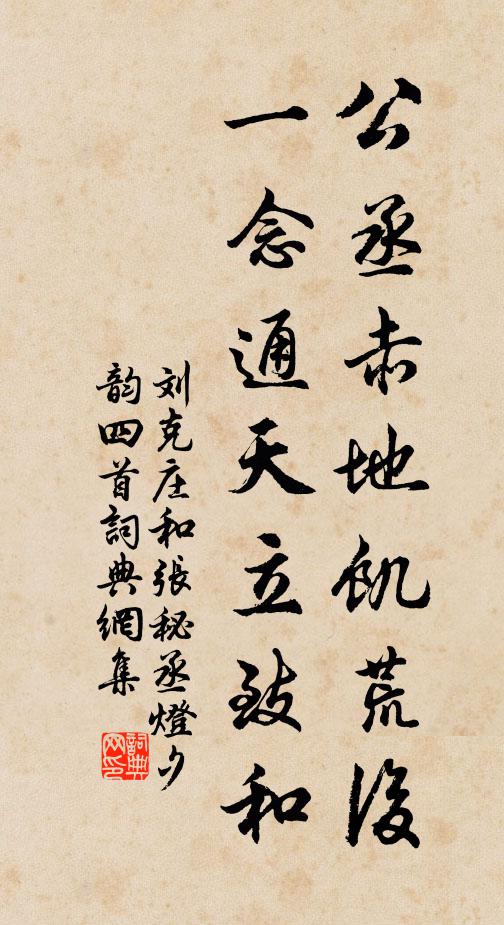 公丞赤地飢荒後
一念通天立致和
刘克庄和張秘丞燈夕
韵四首詞典網集
詞典网印